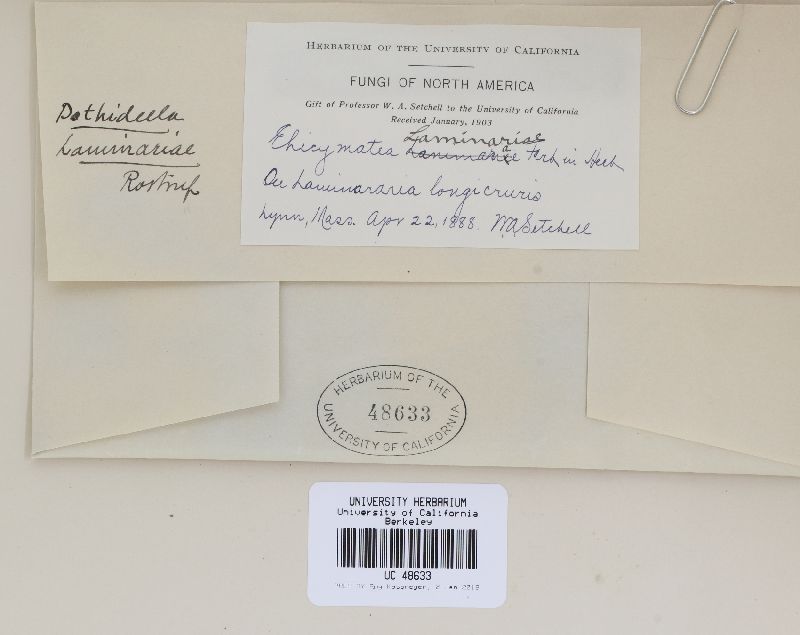 Dothidella
Laminariae
Rostrup
HERBARIUM OF THE UNIVERSITY OF CALIFORNIA
FUNGI OF NORTH AMERICA
Gift of Professor W. A. Setchell to the University of California
Received January, 1903
Laminariae
Ehicymatea in Herb
On Laminararia longicruris
Lynn, Mass. Apr 22, 1888. W.A. Setchell
HERBARIUM OF THE
48633
UNIVERSITY OF CALIFORNIA
UNIVERSITY HERBARIUM
University of California
Berkeley
UC 48633